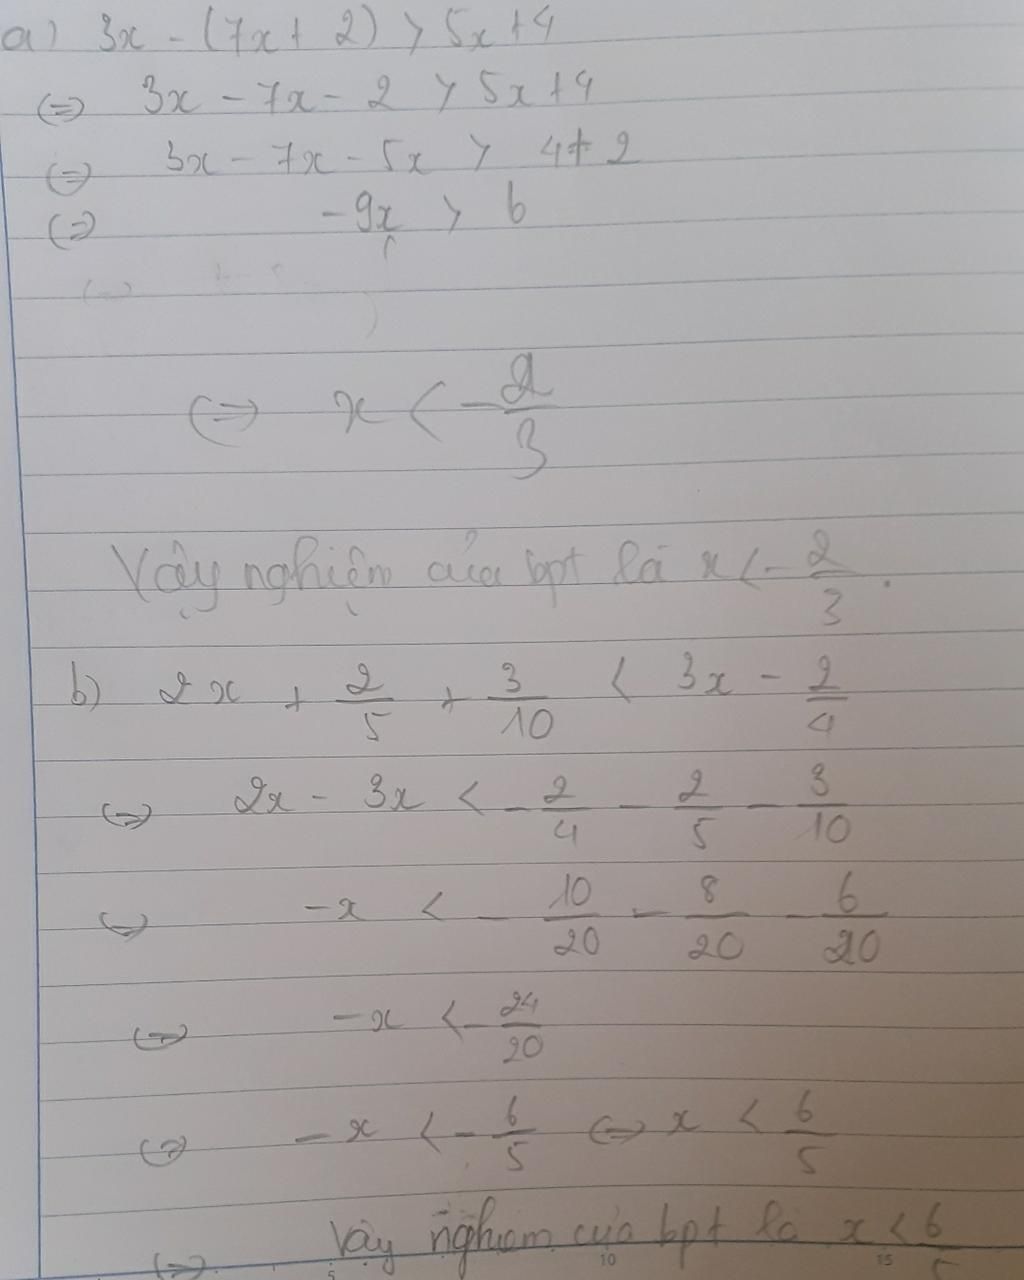 a) 3x - (7x + 2) > 5x + 4
(=) 3x - 7x - 2 > 5x + 4
(=) 3x - 7x - 5x > 4 + 2
(=) -9x > 6
(=) x < - 2/3
Vậy nghiệm của bpt là x < - 2/3.
b) 2x + 2/5 + 3/10 < 3x - 2/4
(=) 2x - 3x < - 2/4 - 2/5 - 3/10
(=) -x < - 10/20 - 8/20 - 6/20
(=) -x < - 24/20
(=) -x < - 6/5 (=) x < 6/5
(=) Vậy nghiệm của bpt là x < 6/5
5 10 15